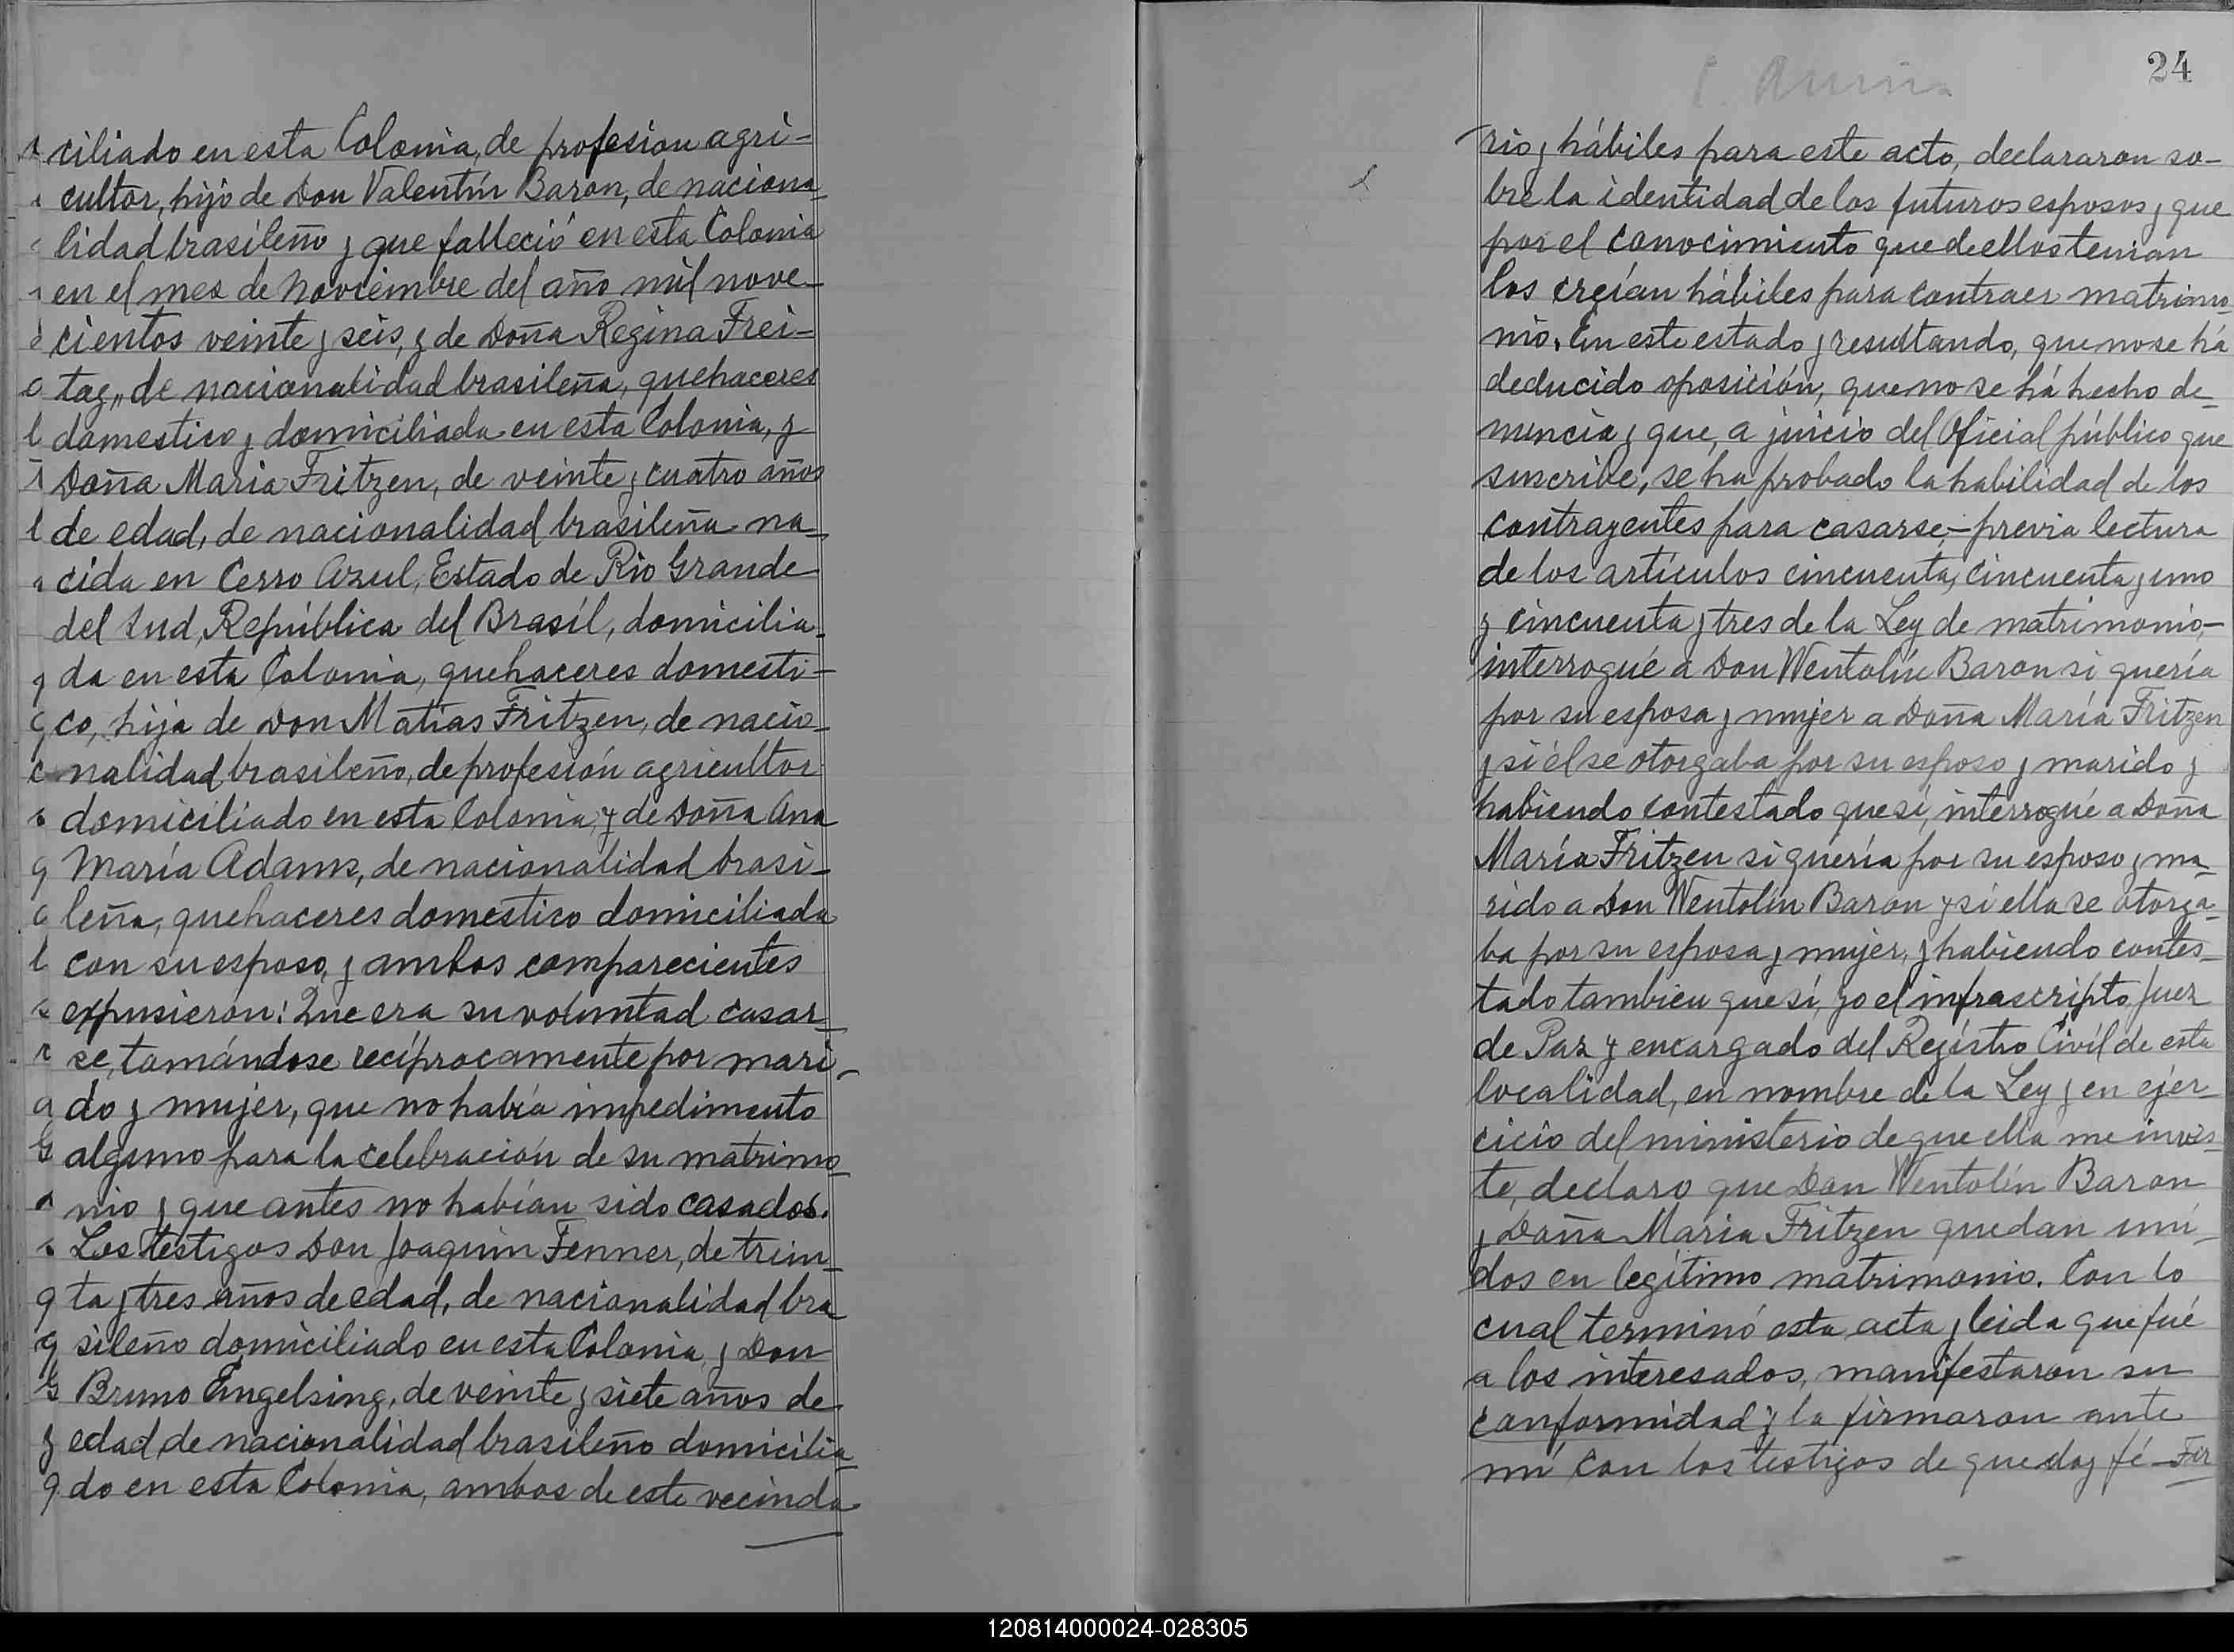 ciliado en esta Colonia, de profesion agri-
cultor, hijo de Don Valentín Baron, de naciona-
lidad brasileño y que falleció en esta Colonia
en el mes de Noviembre del año mil nove-
cientos veinte y seis, y de Doña Regina Frei-
tag, de nacionalidad brasileña, quehaceres
domestico y domiciliada en esta Colonia, y
Doña Maria Fritzen, de veinte y cuatro años
de edad, de nacionalidad brasileña na-
cida en Cerro Azul, Estado de Rio Grande
del Sud, República del Brasíl, domicilia-
da en esta Colonia, quehaceres domesti-
co, hija de Don Matías Fritzen, de nacio-
nalidad brasileño, de profesión agricultor
domiciliado en esta Colonia, y de Doña Ana
María Adams, de nacionalidad brasi-
leña, quehaceres domestico domiciliada
con su esposo, y ambos comparecientes
expusieron: Que era su voluntad casar-
se, tomándose recíprocamente por mari-
do y mujer, que no había impedimento
alguno para la celebración de su matrimo-
nio y que antes no habían sido casados.
Los testigos Don Joaquin Fenner, de trein-
ta y tres años de edad, de nacionalidad bra
sileño domiciliado en esta Colonia y Don
Bruno Engelsing, de veinte y siete años de
edad, de nacionalidad brasileño domicilia-
do en esta Colonia, ambos de este vecinda
24
rio y hábiles para este acto, declararon so-
bre la identidad de los futuros esposos y que
por el conocimiento que de ellos tenian
los creían hábiles para contraer matrimo-
nio. En este estado y resultando, que no se há
deducido oposición, que no se há hecho de-
nuncia y que, a juicio del Oficial público que
suscribe, se ha probado la habilidad de los
contrayentes para casarse,- previa lectura
de los artículos cincuenta, cincuenta y uno
y cincuenta y tres de la Ley de matrimonio,-
interrogué a Don Wentolín Baron si quería
por su esposa y mujer a Doña María Fritzen
y si él se otorgaba por su esposo y marido y
habiendo contestado que sí, interrogué a Doña
María Fritzen si quería por su esposo y ma-
rido a Don Wentolín Baron y si ella se otorga-
ba por su esposa y mujer, y habiendo contes-
tado tambien que sí, yo el infrascripto Juez
de Paz y encargado del Regístro Civíl de esta
localidad, en nombre de la Ley y en ejer-
cicio del ministerio de que ella me invis-
te, declaro que Don Wentolín Baron
y Doña Maria Fritzen quedan uni-
dos en legítimo matrimonio. Con lo
cual terminó esta acta, y leida que fué
a los interesados, manifestaron su
conformidad y la firmaron ante
mí con los testigos de que doy fé - Fir
120814000024-028305